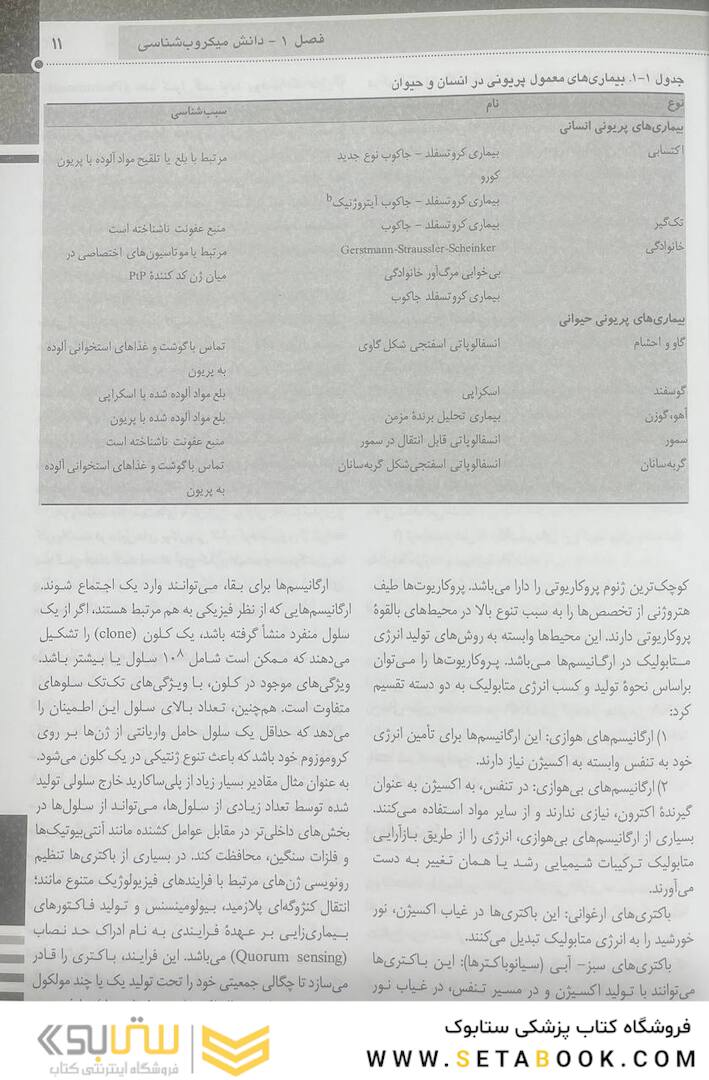 فصل ۱ - دانش میکروب‌شناسی
۱۱
جدول ۱-۱. بیماری‌های معمول پریونی در انسان و حیوان
نوع نام سبب‌شناسی
بیماری‌های پریونی انسانی
اکتسابی بیماری کروتسفلد - جاکوب نوع جدید مرتبط با بلع یا تلقیح مواد آلوده با پریون
کورو
بیماری کروتسفلد - جاکوب آیتروژنیکb
تک‌گیر بیماری کروتسفلد - جاکوب منبع عفونت ناشناخته است
خانوادگی Gerstmann-Straussler-Scheinker مرتبط با موتاسیون‌های اختصاصی در
بی‌خوابی مرگ‌آور خانوادگی میان ژن کد کنندۀ PtP
بیماری کروتسفلد جاکوب
بیماری‌های پریونی حیوانی
گاو و احشام انسفالوپاتی اسفنجی شکل گاوی تماس با گوشت و غذاهای استخوانی آلوده
به پریون
گوسفند اسکراپی بلع مواد آلوده شده با اسکراپی
آهو، گوزن بیماری تحلیل برندۀ مزمن بلع مواد آلوده شده با پریون
سمور انسفالوپاتی قابل انتقال در سمور منبع عفونت ناشناخته است
گربه‌سانان انسفالوپاتی اسفنجی‌شکل گربه‌سانان تماس با گوشت و غذاهای استخوانی آلوده
به پریون
کوچک‌ترین ژنوم پروکاریوتی را دارا می‌باشد. پروکاریوت‌ها طیف
هتروژنی از تخصص‌ها را به سبب تنوع بالا در محیط‌های بالقوۀ
پروکاریوتی دارند. این محیط‌ها وابسته به روش‌های تولید انرژی
متابولیک در ارگانیسم‌ها می‌باشد. پروکاریوت‌ها را می‌توان
براساس نحوۀ تولید و کسب انرژی متابولیک به دو دسته تقسیم
کرد:
۱) ارگانیسم‌های هوازی: این ارگانیسم‌ها برای تأمین انرژی
خود به تنفس وابسته به اکسیژن نیاز دارند.
۲) ارگانیسم‌های بی‌هوازی: در تنفس، به اکسیژن به عنوان
گیرندۀ اکترون، نیازی ندارند و از سایر مواد استفاده می‌کنند.
بسیاری از ارگانیسم‌های بی‌هوازی، انرژی را از طریق بازآرایی
متابولیک ترکیبات شیمیایی رشد یا همان تغییر به دست
می‌آورند.
باکتری‌های ارغوانی: این باکتری‌ها در غیاب اکسیژن، نور
خورشید را به انرژی متابولیک تبدیل می‌کنند.
باکتری‌های سبز- آبی (سیانوباکترها): این باکتری‌ها
می‌توانند با تولید اکسیژن و در مسیر تنفس، در غیاب نور
ارگانیسم‌ها برای بقا، می‌توانند وارد یک اجتماع شوند.
ارگانیسم‌هایی که از نظر فیزیکی به هم مرتبط هستند، اگر از یک
سلول منفرد منشأ گرفته باشد، یک کلون (clone) را تشکیل
می‌دهند که ممکن است شامل ۱۰۸ سلول یا بیشتر باشد.
ویژگی‌های موجود در کلون، با ویژگی‌های تک‌تک سلوهای
متفاوت است. هم‌چنین، تعداد بالای سلول این اطمینان را
می‌دهد که حداقل یک سلول حامل واریانتی از ژن‌ها بر روی
کروموزوم خود باشد که باعث تنوع ژنتیکی در یک کلون می‌شود.
به عنوان مثال مقادیر بسیار زیاد از پلی‌ساکارید خارج سلولی تولید
شده توسط تعداد زیادی از سلول‌ها، می‌تواند از سلول‌ها در
بخش‌های داخلی‌تر در مقابل عوامل کشنده مانند آنتی‌بیوتیک‌ها
و فلزات سنگین، محافظت کند. در بسیاری از باکتری‌ها تنظیم
رونویسی ژن‌های مرتبط با فرایندهای فیزیولوژیک متنوع مانند؛
انتقال کنژوگه‌ای پلازمید، بیولومینسنس و تولید فاکتورهای
بیماری‌زایی بر عهدۀ فرایندی به نام ادراک حد نصاب
(Quorum sensing) می‌باشد. این فرایند، باکتری را قادر
می‌سازد تا چگالی جمعیتی خود را تحت تولید یک یا چند مولکول
فروشگاه کتاب پزشکی ستابوک
WWW.SETABOOK.COM
ستابوک
فروشگاه اینترنتی کتاب